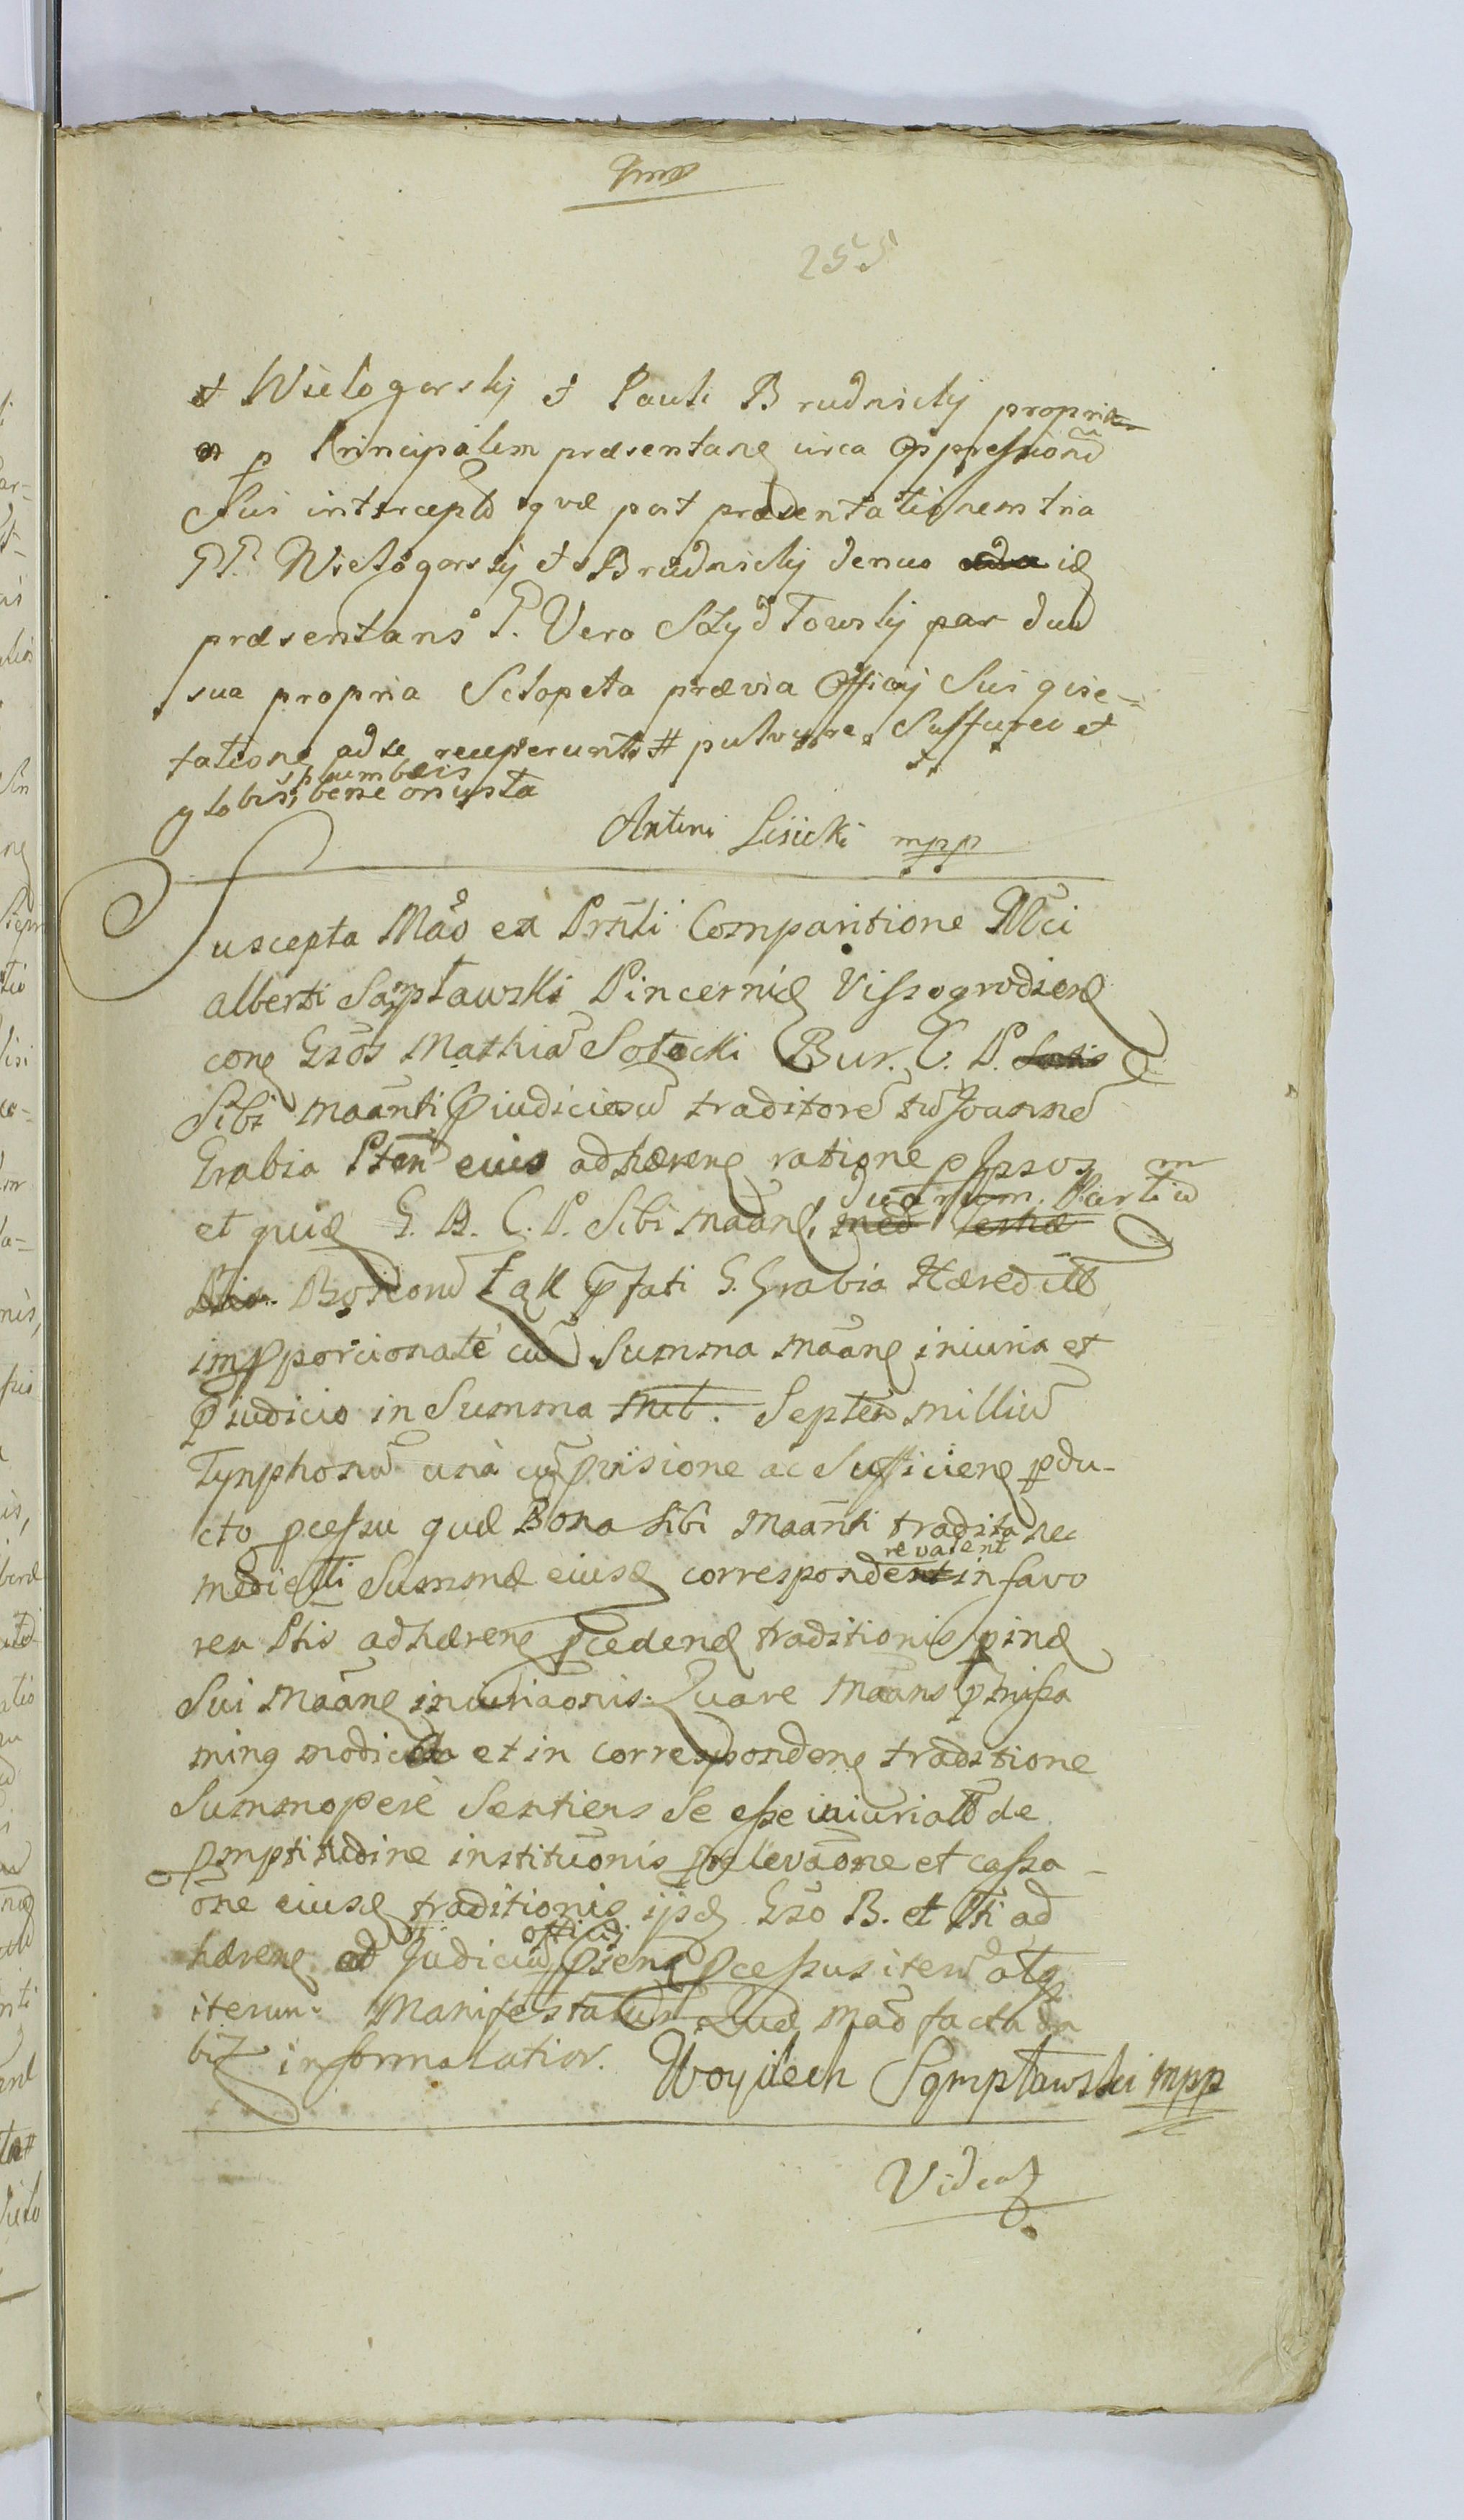 255
et Wielogorskij et Pauli Brudnickij propria
p Principalem præsentanę circa Oppreſsionē
Sui intercepta quæ post præsentationem tria
PP. Wielogorskij et Brudnickij denuo idę
præsentans P. Vero Szydłowskij par duū
sua propria Sclopeta prævia Officij Sui quie=
tatione ad se receperunt # pulvere Sulfureo et
globis plumbeis bene onusta
Antoni Lisicki mpp
Suscepta Mão ex Prñli Comparitione Mci
alberti Sąmpławski Pincernię Viſsogrodienę
conę Gsos Mathiã Sobocki Bur. C. P.
Sibi maãnti Pjudiciosũ traditorẽ tũ Joannẽ
Grabia Pten eius adhærenę ratione
et quię G. B. C. P. Sibi maãnę, duarum Partiũ
Bonorũ Łąk pfati G. Grabia Hæredit
impporcionatè cũ Summa maãnę iniuria et
Pjudicio in Summa Septem milliũ
Tynphonũ unà cũ pvisione ac Sufficienę pdu-
cto pceſsu quæ Bona Sibi Maãnti tradita nec
medietti Summæ eiusdę correspondent revalent in favo
rem Ptis adhærenę pcedenę traditionis pinę
Sui Maãnę iniuriaõnis. Quare Maãns Pmiſsa
minę modica et in correspondenę traditione
Summoperè Sentiens Se eſse iniuriatũ de
pmptitudine instituõnis relevaõne et caſsa-
õne eiusdę traditionis ijsdę Gso B. et Pti ad
hærenę ad Judiciũ officij Psenę pceſsus iterũ atq
iterum Manifestatur Quæ Maõ facta da
bit informalatior. Woyciech Sąmpławski mpp
Videat